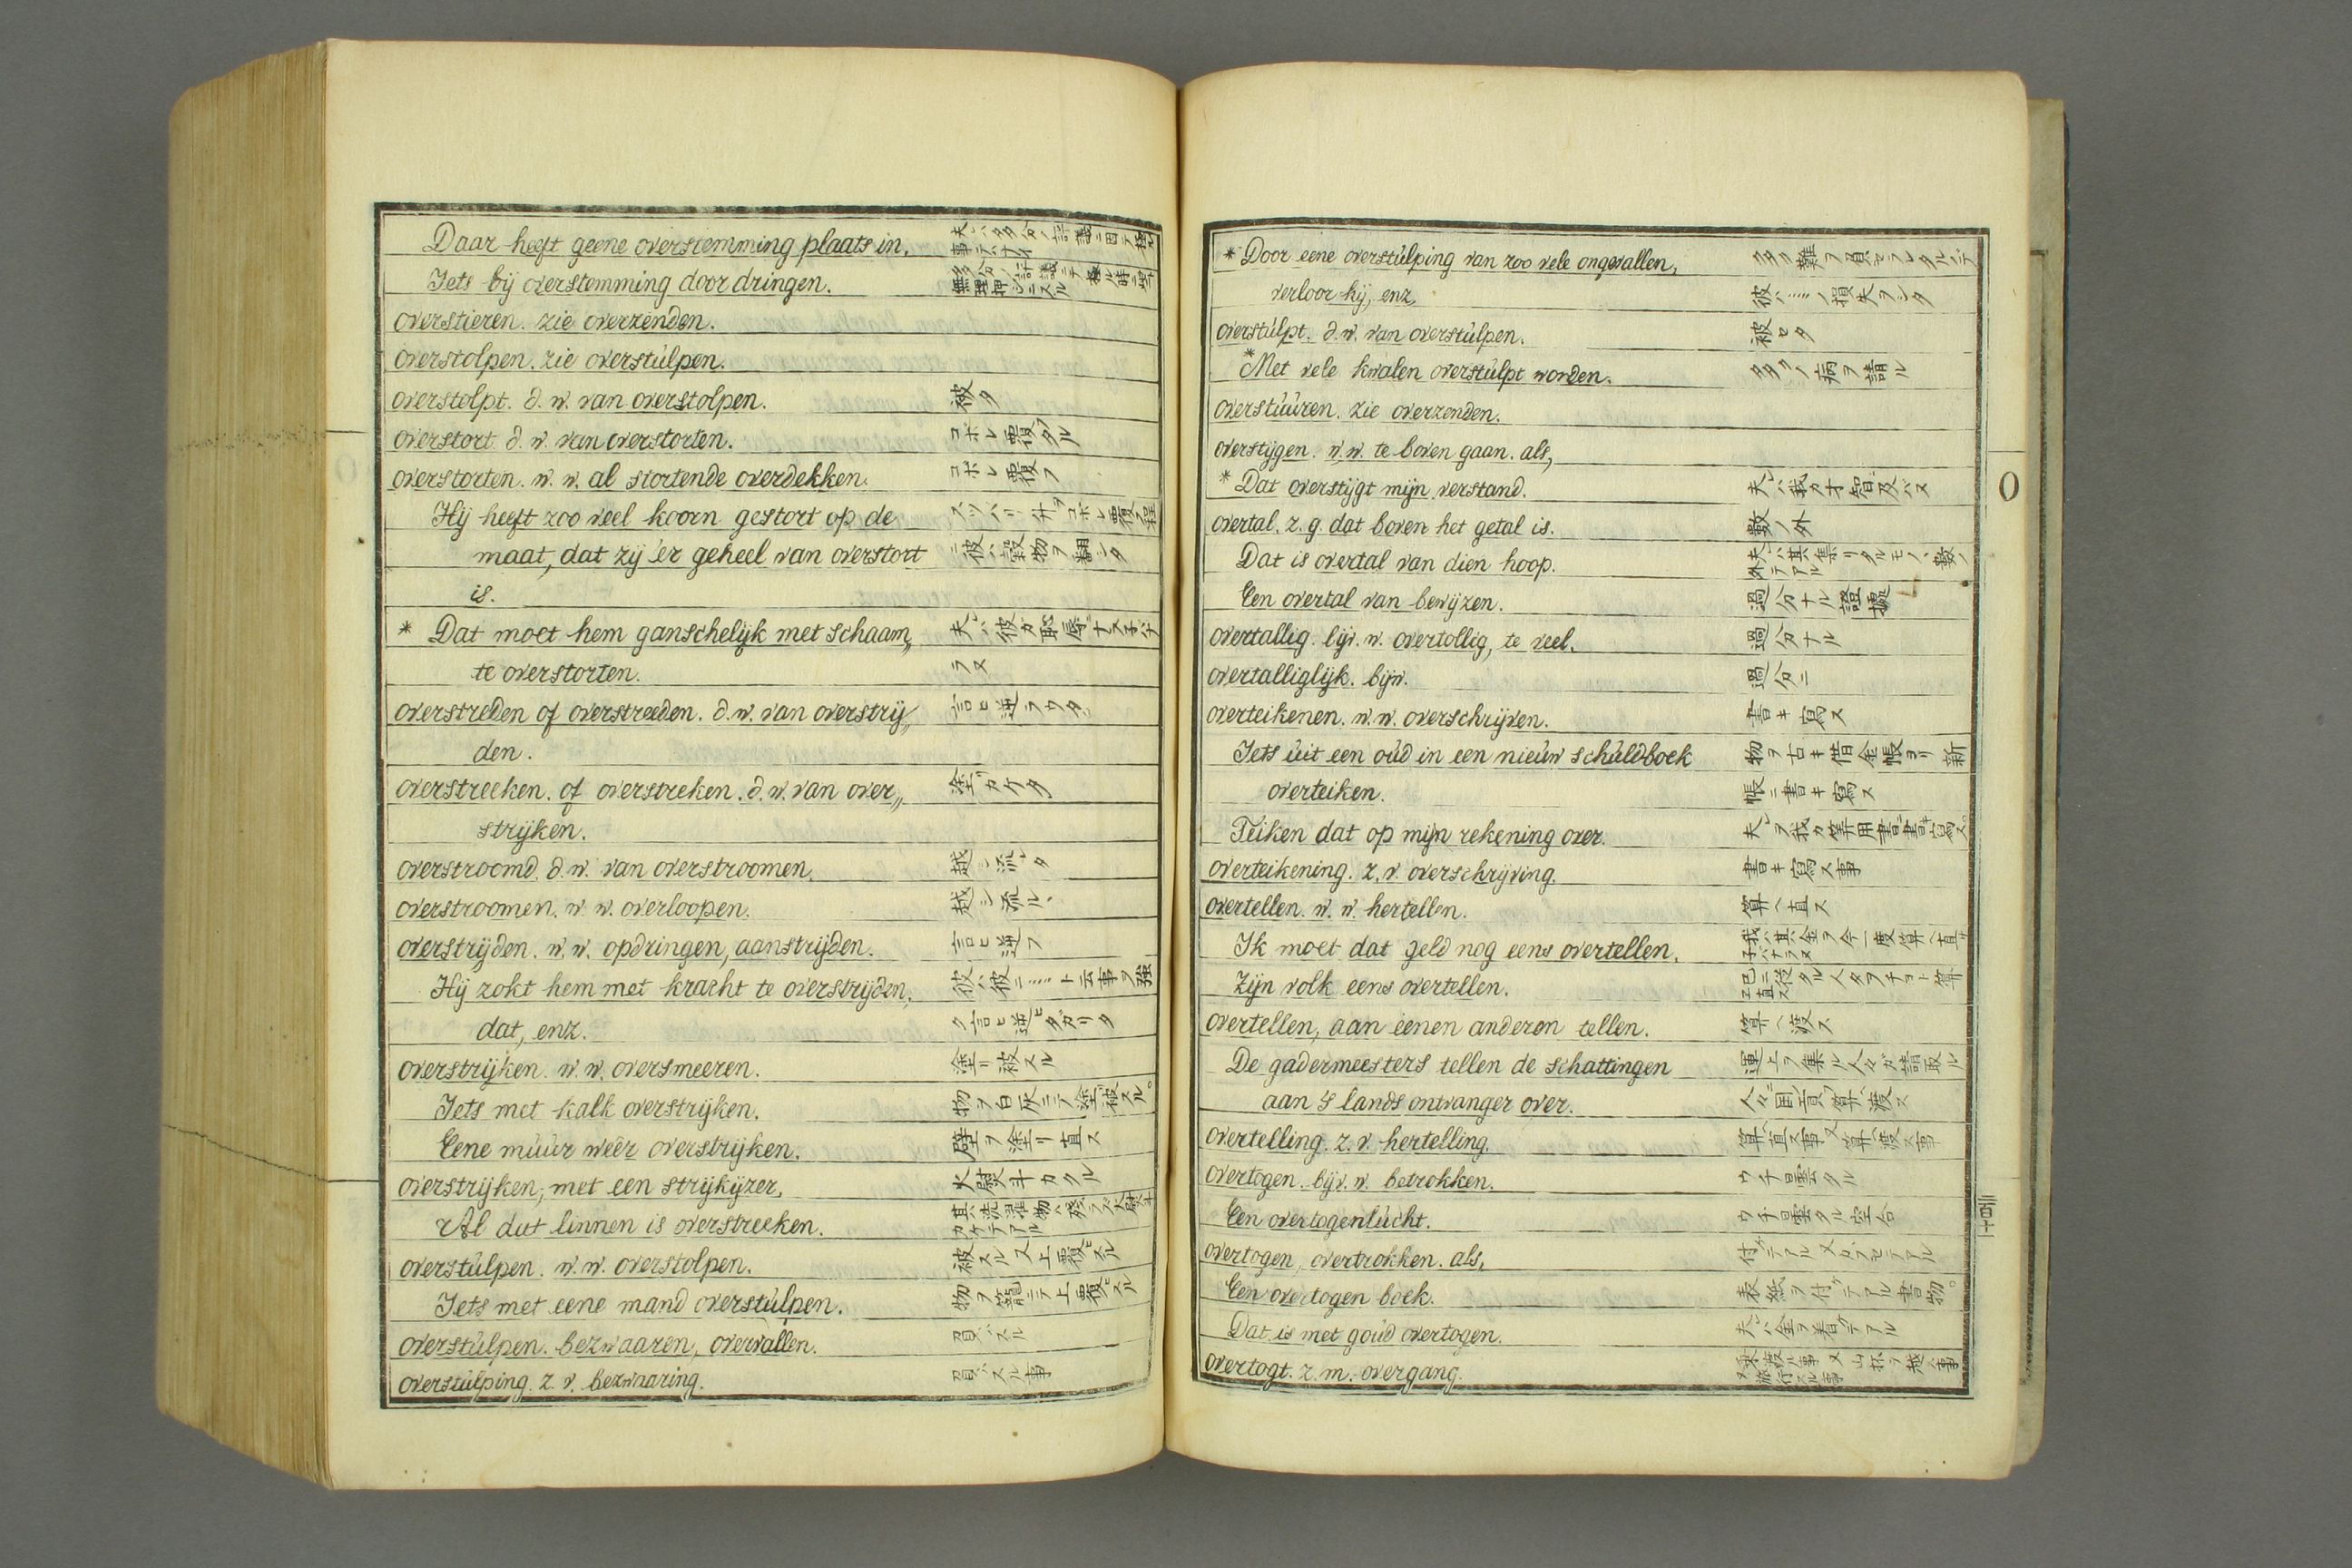 Daar heeft geene overstemming plaats in.
Iets bij overstemming door dringen.
overstieren. zie overzenden.
overstolpen. zie overstúlpen.
overstolpt. d. w. van overstolpen. 被タ
overstort. d. w. van overstorten. コボレ覆タル
overstorten. w. w. al stortende overdekken. コボレ覆フ
Hij heeft zoo veel koorn gestort op de
maat, dat zij er geheel van overstort 彼ハ穀物ヲ翻シタ
is.
* Dat moet hem ganschelijk met schaam„
te overstorten. ラヌ
overstreden of overstreeden. d. w. van overstrij„ 言ヒ逆ラウタ
den.
overstreeken. of overstreken. d. w. van over„ 塗リカケタ
strijken.
overstroomd. d. w. van overstroomen. 越シ流レタ
overstroomen. w. w. overloopen. 越シ流ル
overstrijden. w. w. opdringen, aanstrijden. 言ヒ逆フ
Hij zokt hem met kracht te overstrijden, 彼ハ彼ニ……ト云事ヲ強
dat, enz. ク言ヒ逆ヒタガリタ
overstrijken. w. w. oversmeeren. 塗リ被スル
Iets met kalk overstrijken. 物ヲ白灰ニテ塗被スル。
Eene múúr weêr overstrijken. 壁ヲ塗リ直ス
overstrijken, met een strijkijzer. 火熨斗カクル
Al dat linnen is overstreeken.
overstúlpen. w. w. overstolpen. 被スル又上覆スル
Iets met eene mand overstúlpen. 物ヲ籠ニテ上覆スル
overstúlpen. bezwaaren, overvallen. 負スル
overstúlping. z. v. bezwaaring. 負スル事
* Door eene overstúlping van zoo vele ongevallen, 多ノ難ヲ負セラレタルニテ
verloor hij, enz. 彼ハ……ノ損失ヲシタ
overstúlpt. d. w. van overstúlpen. 被セタ
* Met vele kwalen overstúlpt worden. 多クノ病ヲ請ル
overstúúren. zie overzenden.
overstijgen. w. w. te boven gaan. als,
* Dat overstijgt mijn verstand. 夫レハ我カ才智及バヌ
overtal. z. g. dat boven het getal is. 數ノ外
Dat is overtal van dien hoop. 夫レハ其集リタルモノヽ數ノ外テアル
Een overtal van bewijzen. 過分ナル證據
overtallig. bijv. w. overtollig, te veel. 過分ナル
overtalliglijk. bijw. 過分ニ
overteikenen. w. w. overschrijven. 書キ寫ス
Iets úit een oúd in een nieúw schúldboek 物ヲ古キ借金帳ヨリ新
overteiken. 帳ニ書キ寫ス
Teiken dat op mijn rekening over. 夫レヲ我カ算用書ニ書キ寫ス。
overteikening. z. v. overschrijving. 書キ寫ス事
overtellen. w. w. hertellen. 算ヘ直ス
Ik moet dat geld nog eens overtellen. 我ハ其金ヲ今一度算ヘ直サ子バナラヌ
Zijn volk eens overtellen.
overtellen, aan eenen anderen tellen. 算ヘ渡ス
De gadermeesters tellen de schattingen 運上ヲ集ル人々ガ請取ル
aan 's lands ontvanger over.
overtelling. z. v. hertelling. 算ヘ直ス事又算ヘ渡ス事
overtogen. bijv. w. betrokken. ウチ曇タル
Een overtogenlúcht. ウチ曇タル空合
overtogen, overtrokken. als, 付ケテアル又カブセテアル
Een overtogen boek. 表紙ヲ付ケテアル書物。
Dat is met goúd overtogen. 夫レハ金ヲ着ケテアル
overtogt. z. m. overgang.
O